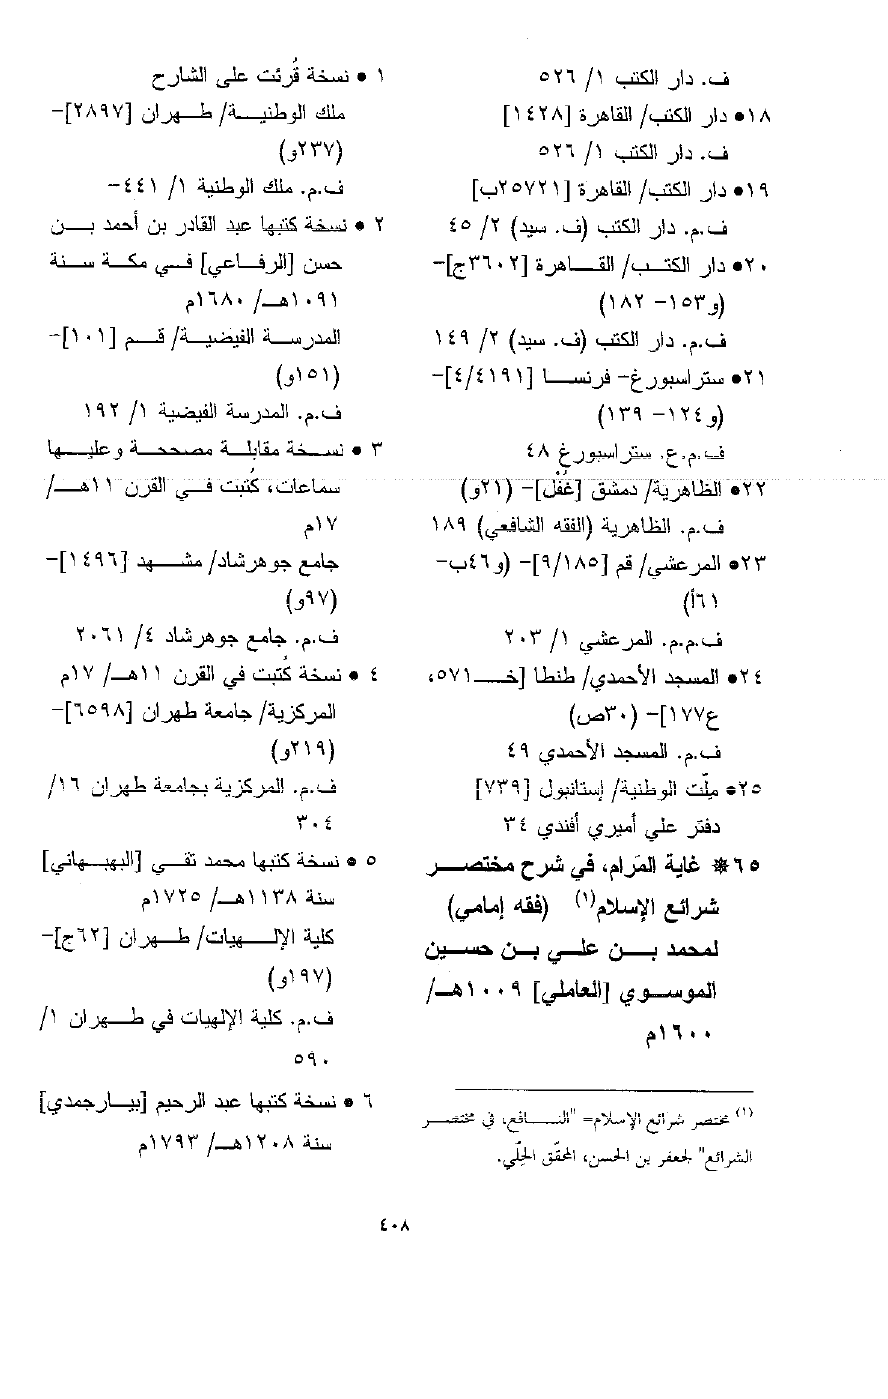 ف. دار الكتب ١/ ٥٢٦
١٨• دار الكتب/ القاهرة [١٤٢٨]
ف. دار الكتب ١/ ٥٢٦
١٩• دار الكتب/ القاهرة [٢٥٧٢١ب]
ف.م. دار الكتب (ف. سيد) ٢/ ٤٥
٢٠• دار الكتب/ القاهرة [٣٦٠٢ج]-
(و١٥٣- ١٨٢)
ف.م. دار الكتب (ف. سيد) ٢/ ١٤٩
٢١• ستراسبورغ- فرنسا [٤/٤١٩١]-
(و١٢٤- ١٣٩)
ف.م.ع. ستراسبورغ ٤٨
٢٢• الظاهرية/ دمشق [غُفْل]- (٢١و)
ف.م. الظاهرية (الفقه الشافعي) ١٨٩
٢٣• المرعشي/ قم [٩/١٨٥]- (و٤٦ب-
٦١أ)
ف.م.م. المرعشي ١/ ٢٠٣
٢٤• المسجد الأحمدي/ طنطا [خـ٥٧١،
ع١٧٧]- (٣٠ص)
ف.م. المسجد الأحمدي ٤٩
٢٥• ملّت الوطنية/ إستانبول [٧٣٩]
دفتر علي أميري أفندي ٣٤
٦٥* غاية المَرام، في شرح مختصر
شرائع الإسلام(١) (فقه إمامي)
لمحمد بن علي بن حسين
الموسوي [العاملي] ١٠٠٩هـ/
١٦٠٠م
(١) مختصر شرائع الإسلام= "النافع، في مختصر
الشرائع" لجعفر بن الحسن، المحقّق الحلّي.
١ • نسخة قُرئت على الشارح
ملك الوطنية/ طهران [٢٨٩٧]-
(٢٣٧و)
ف.م. ملك الوطنية ١/ ٤٤١-
٢ • نسخة كتبها عبد القادر بن أحمد بن
حسن [الرفاعي] في مكة سنة
١٠٩١هـ/ ١٦٨٠م
المدرسة الفيضية/ قم [١٠١]-
(١٥١و)
ف.م. المدرسة الفيضية ١/ ١٩٢
٣ • نسخة مقابلة مصححة وعليها
سماعات، كُتبت في القرن ١١هـ/
١٧م
جامع جوهرشاد/ مشهد [١٤٩٦]-
(٩٧و)
ف.م. جامع جوهرشاد ٤/ ٢٠٦١
٤ • نسخة كُتبت في القرن ١١هـ/ ١٧م
المركزية/ جامعة طهران [٦٥٩٨]-
(٢١٩و)
ف.م. المركزية بجامعة طهران ١٦/
٣٠٤
٥ • نسخة كتبها محمد تقي [البهبهاني]
سنة ١١٣٨هـ/ ١٧٢٥م
كلية الإلهيات/ طهران [٦٢ج]-
(١٩٧و)
ف.م. كلية الإلهيات في طهران ١/
٥٩٠
٦ • نسخة كتبها عبد الرحيم [بيارجمدي]
سنة ١٢٠٨هـ/ ١٧٩٣م
٤٠٨